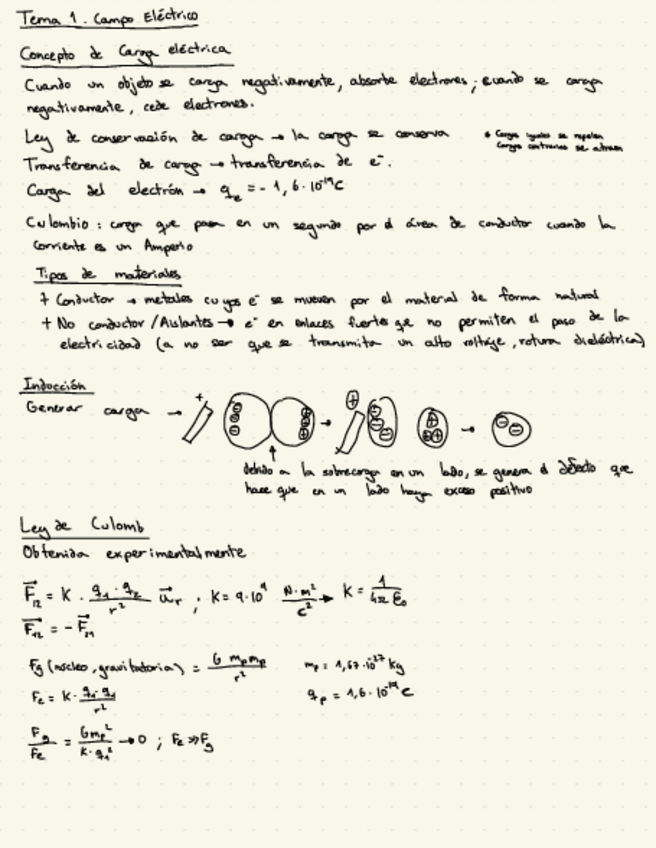 Tema 1. Campo Eléctrico
Concepto de Carga eléctrica
Cuando un objeto se carga negativamente, absorbe electrones; cuando se carga
negativamente, cede electrones.
Ley de conservación de carga → la carga se conserva
* Cargas iguales se repelen
Cargas contrarias se atraen
Transferencia de carga → transferencia de e⁻.
Carga del electrón → qₑ = - 1,6 · 10⁻¹⁹ C
Culombio : carga que pasa en un segundo por el área de conductor cuando la
corriente es un Amperio
Tipos de materiales
+ Conductor → metales cuyos e⁻ se mueven por el material de forma natural
+ No conductor / Aislantes → e⁻ en enlaces fuertes que no permiten el paso de la
electricidad (a no ser que se transmita un alto voltaje, rotura dieléctrica)
Inducción
Generar carga →
debido a la sobrecarga en un lado, se genera el defecto que
hace que en un lado haya exceso positivo
Ley de Culomb
Obtenida experimentalmente
F₁₂ = K · q₁ · q₂ / r² u_r ; K = 9 · 10⁹ N · m² / C² → K = 1 / 4π ε₀
F₁₂ = - F₂₁
Fg (núcleo, gravitatoria) = G mp mp / r²
mp = 1,67 · 10⁻²⁷ kg
Fe = K · q₁ · q₁ / r²
qp = 1,6 · 10⁻¹⁹ C
Fg / Fe = G mp² / K · q₁² → 0 ; Fe >> Fg